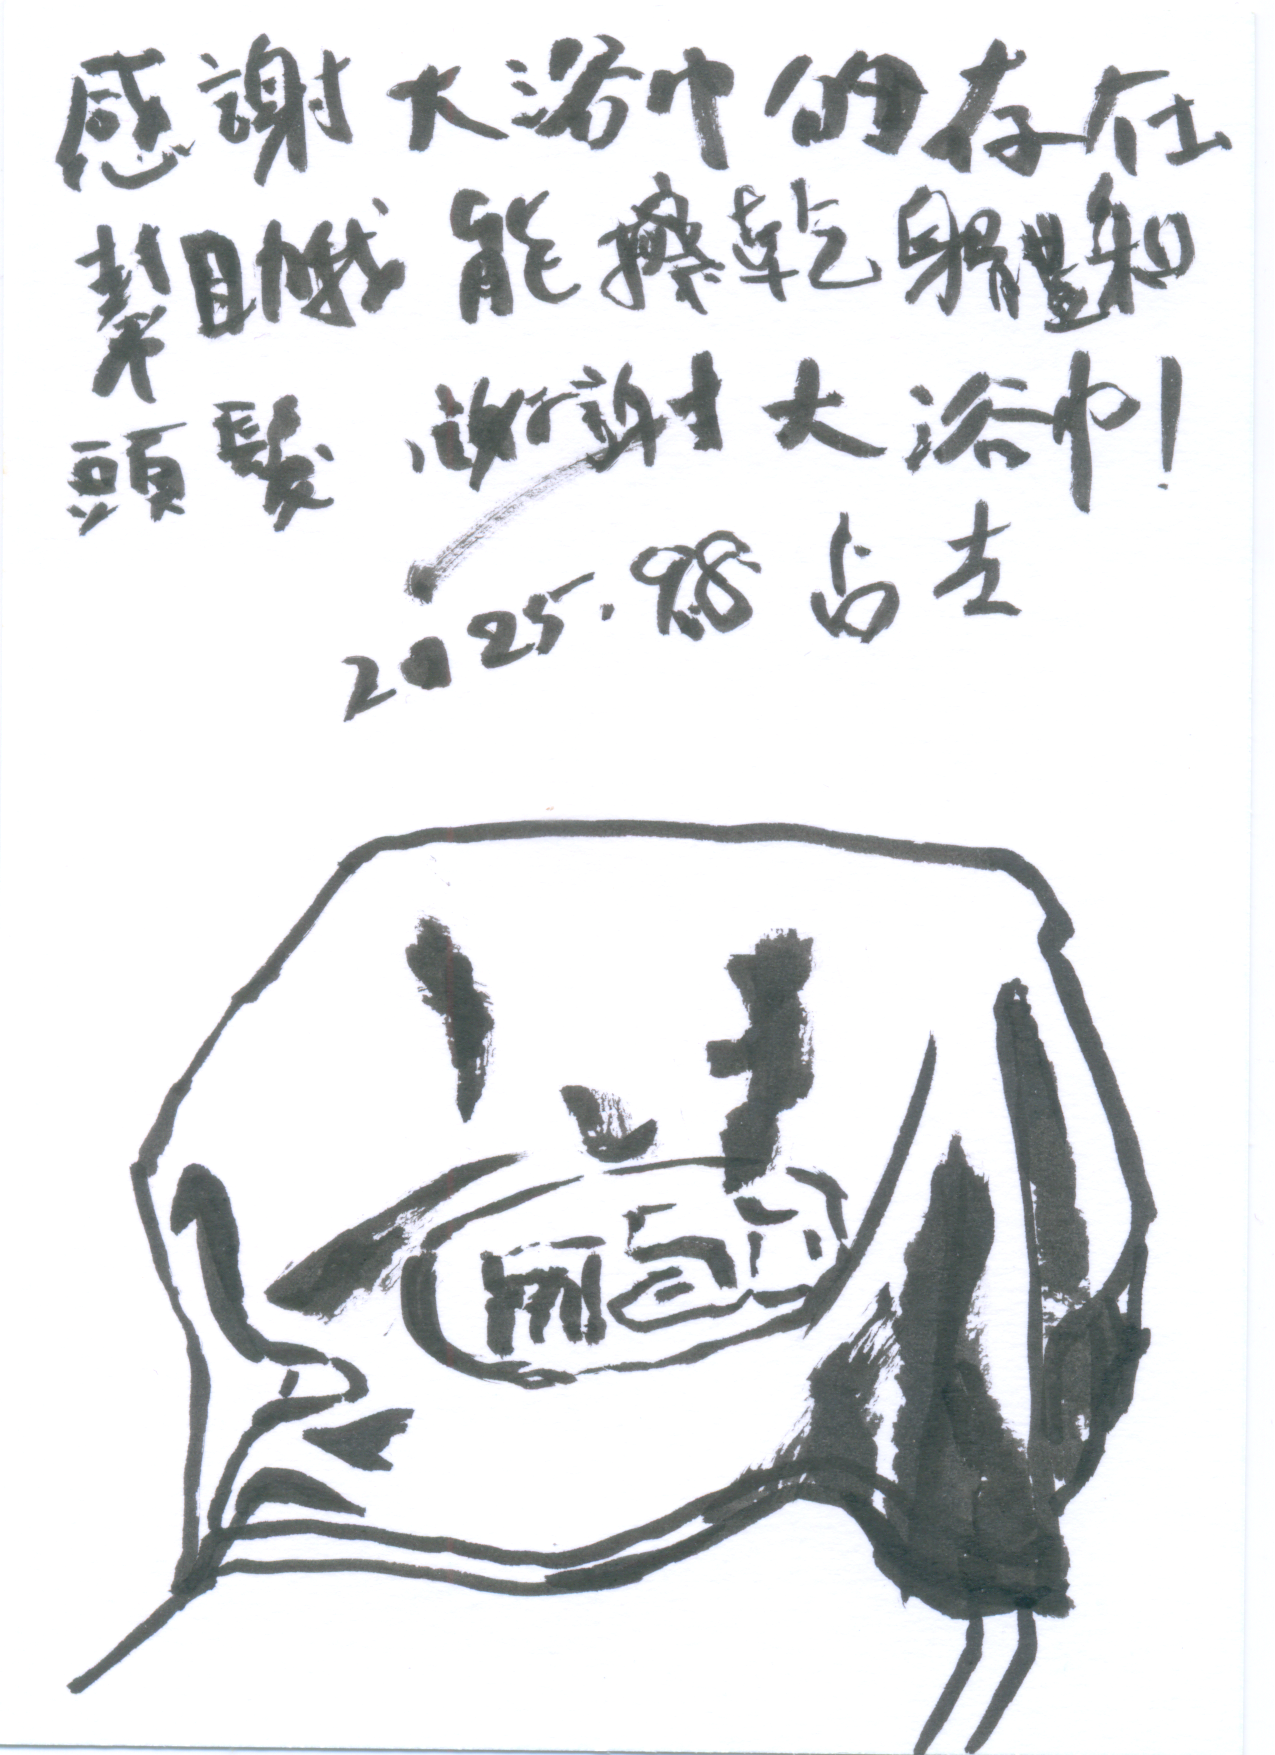 感謝大浴巾的存在
幫助我能擦乾身體和
頭髮 謝謝大浴巾!
2025.9.8 占古